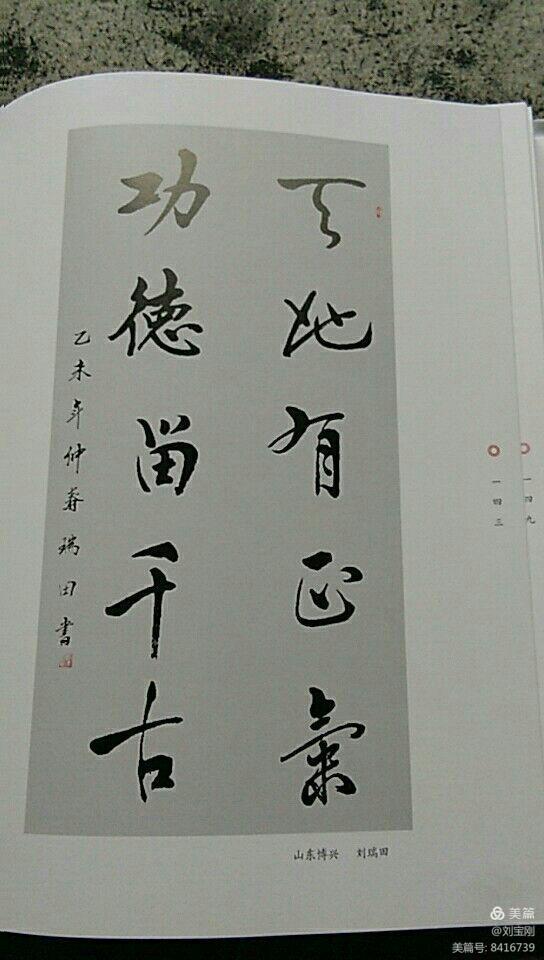 天地有正氣
功德留千古
乙未年仲春瑞田書
山东博兴 刘瑞田
一四三
一四九
美篇
@刘宝刚
美篇号: 8416739